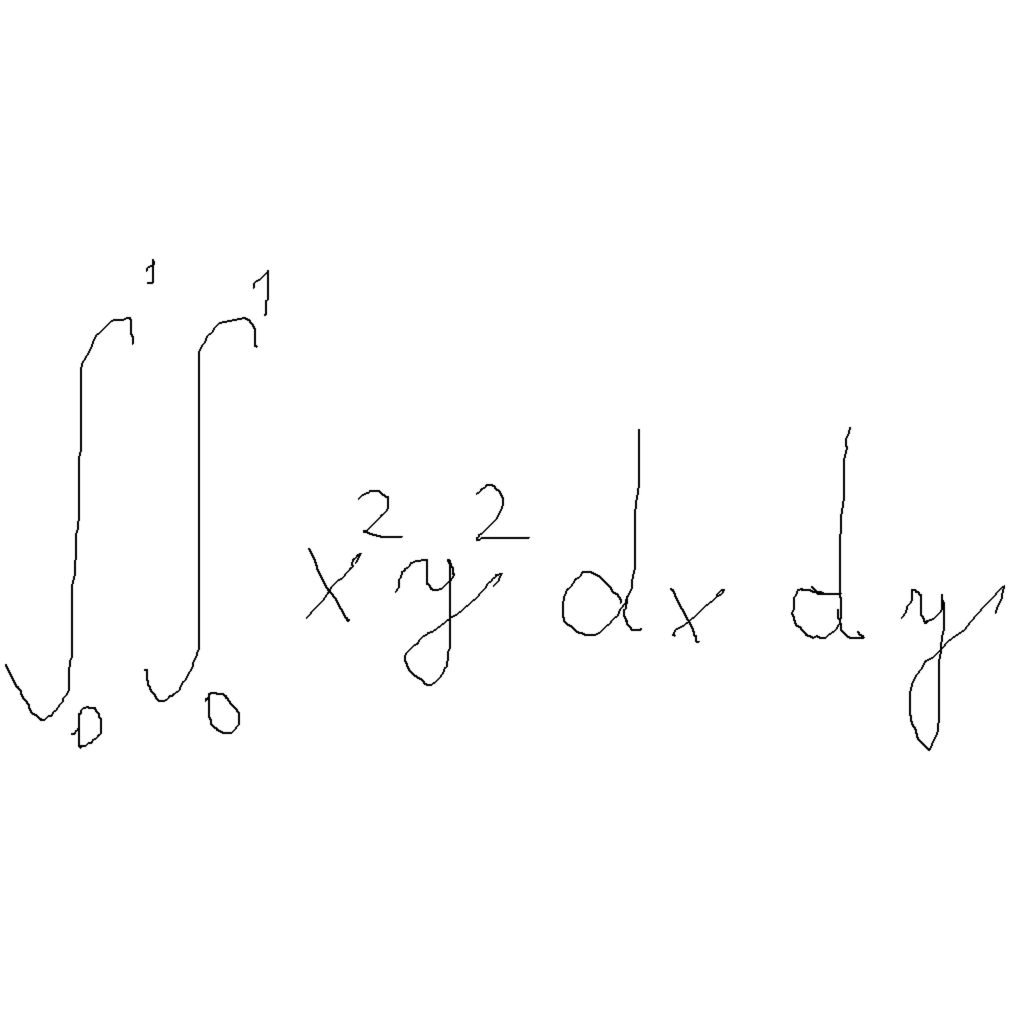 ∫₀¹∫₀¹ x²y² dx dy